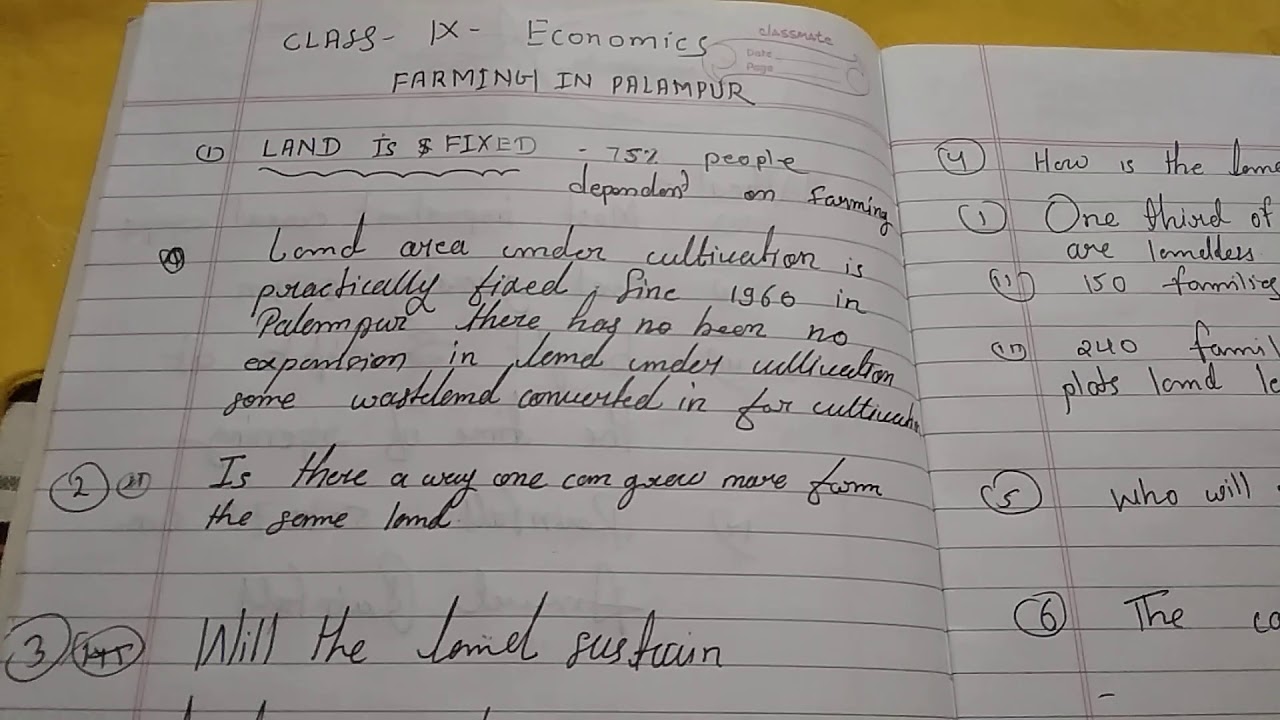 CLASS- IX- Economics
classmate
Date
Page
FARMING IN PALAMPUR
(1) LAND IS $ FIXED - 75% people
dependent on farming
Land area under cultivation is
practically fixed, Sinc 1960 in
Palampur there has no been no
expansion in land under cultivation
some wasteland converted in for cultivatn
2 Is there a way one can grow more farm
the same land.
3 Will the land sustain
4 How is the land
(i) One third of
are landders
(ii) 150 families
240 famil
plots land le
5 Who will
6 The co
-